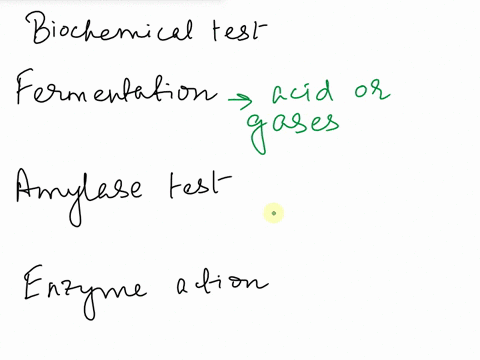 Biochemical test
Fermentation → acid or
gases
Amylase test
Enzyme action